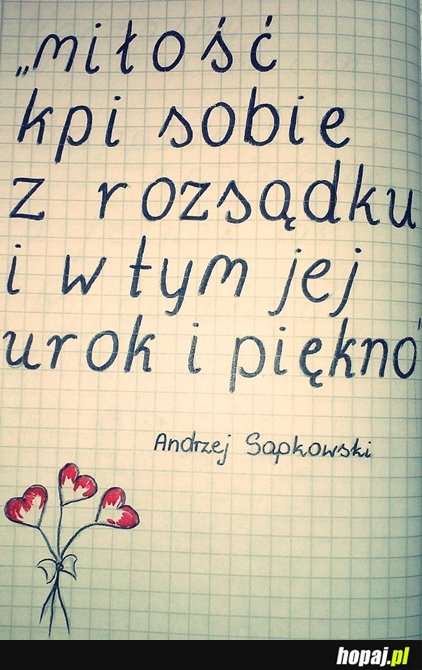 „miłość
kpi sobie
z rozsądku
i w tym jej
urok i piękno"
Andrzej Sapkowski
hopaj.pl